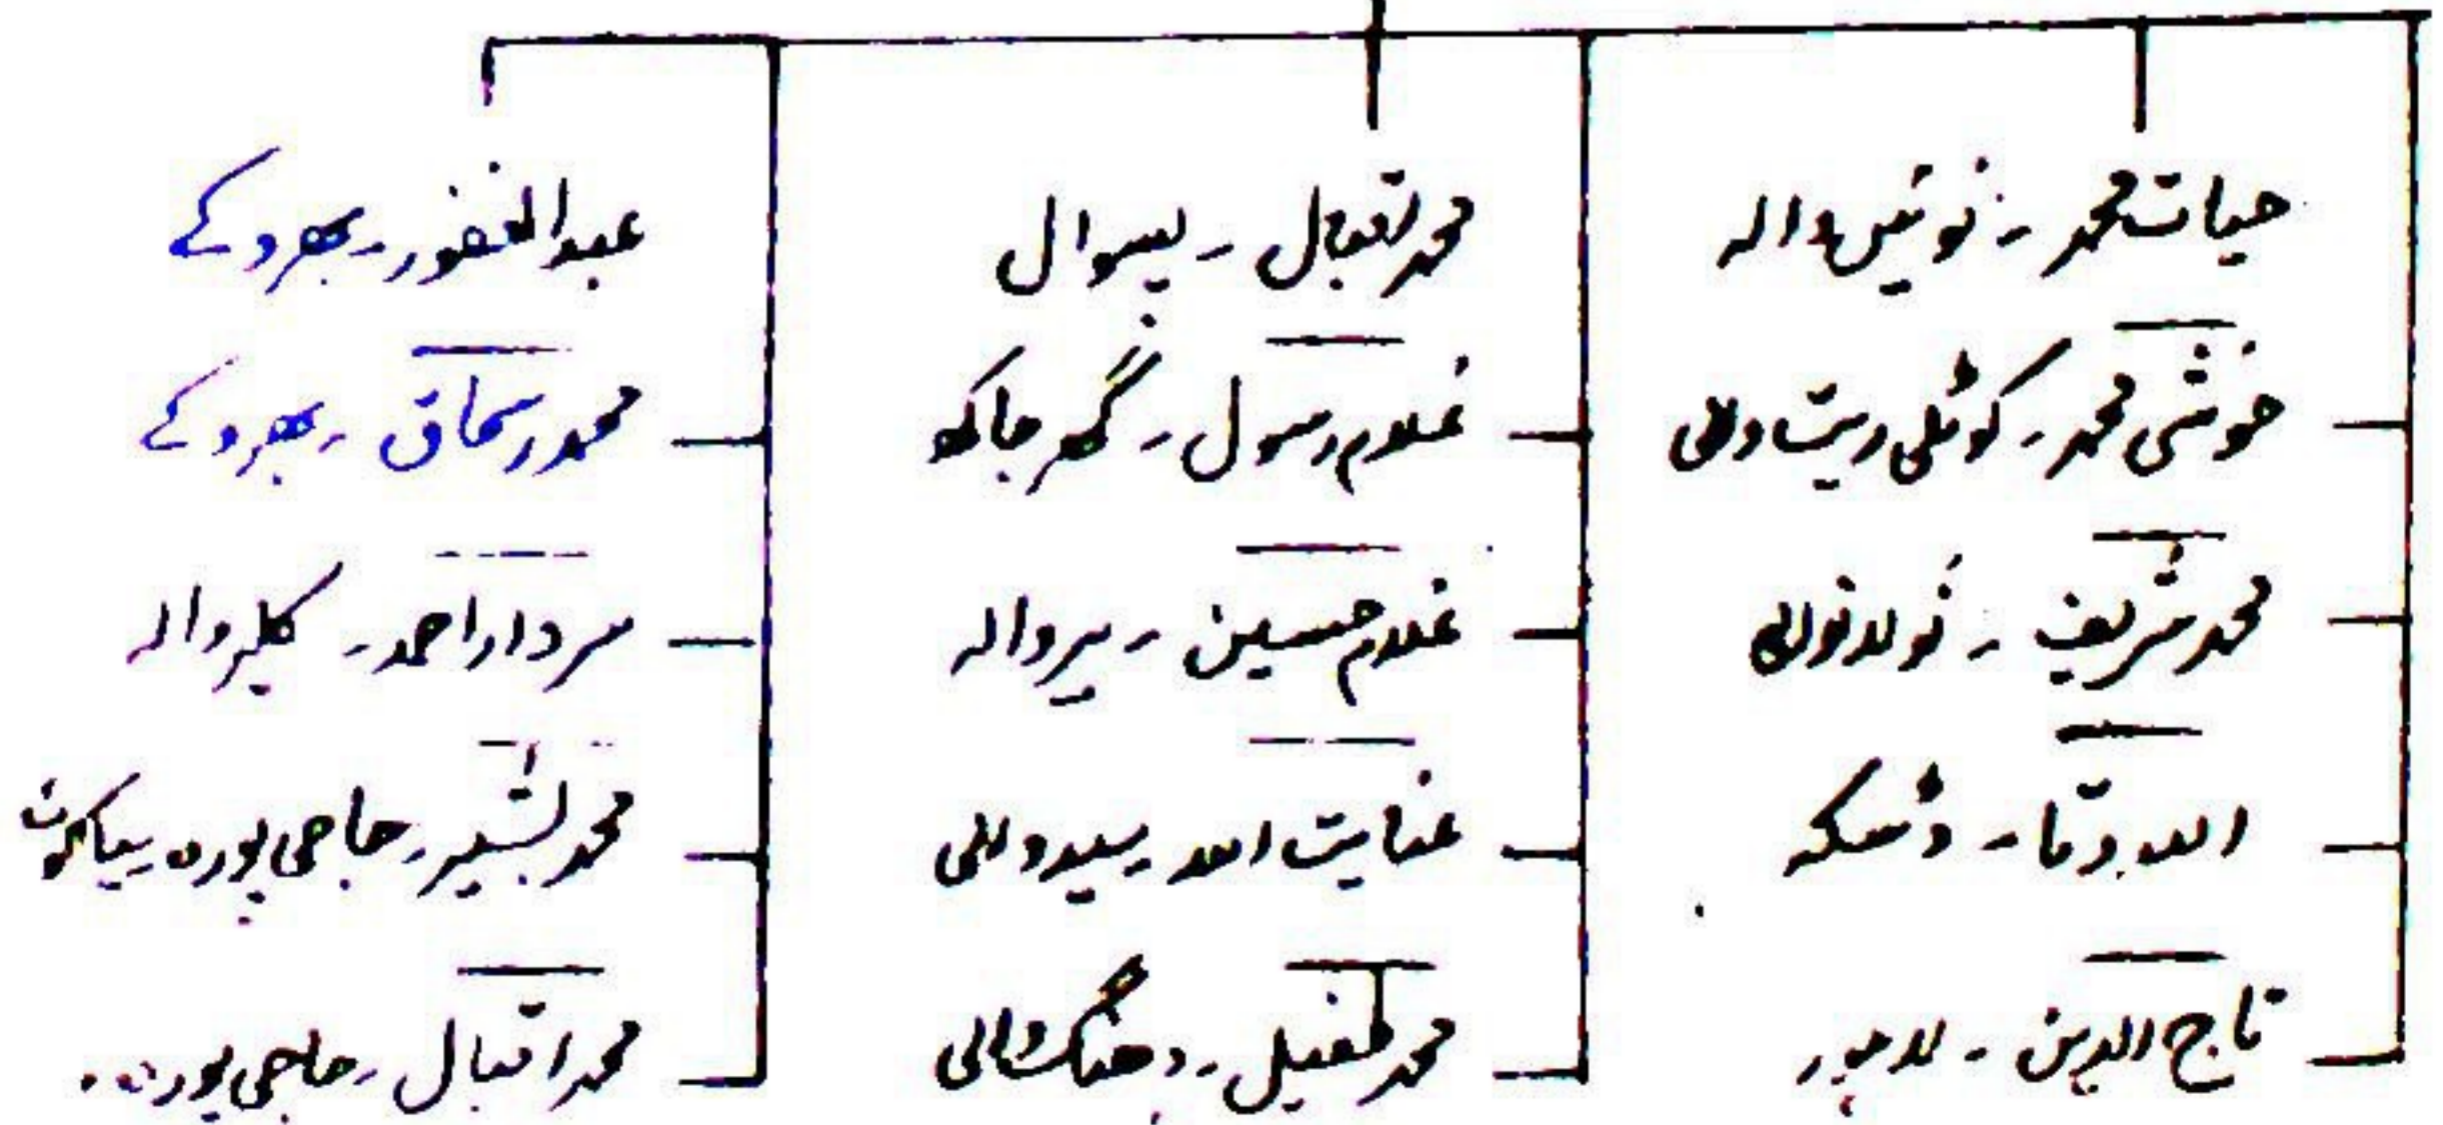 حیات محمد ۔ نوئیں والہ
خوشی محمد ۔ کوٹلی
محمد شریف ۔
اللہ دتا ۔ ڈسکہ
تاج الدین ۔ لاہور
محمد اقبال ۔ بسوال
غلام رسول ۔ گھرجاکھ
غلام حسین ۔ بیروالہ
عنایت اللہ ۔
محمد طفیل ۔
عبدالغفور ۔ بھروکے
محمد اسحاق ۔ بھروکے
سردار احمد ۔ کلیر والہ
محمد بشیر ۔ حاجی پورہ سیالکوٹ
محمد اقبال ۔ حاجی پورہ ۔